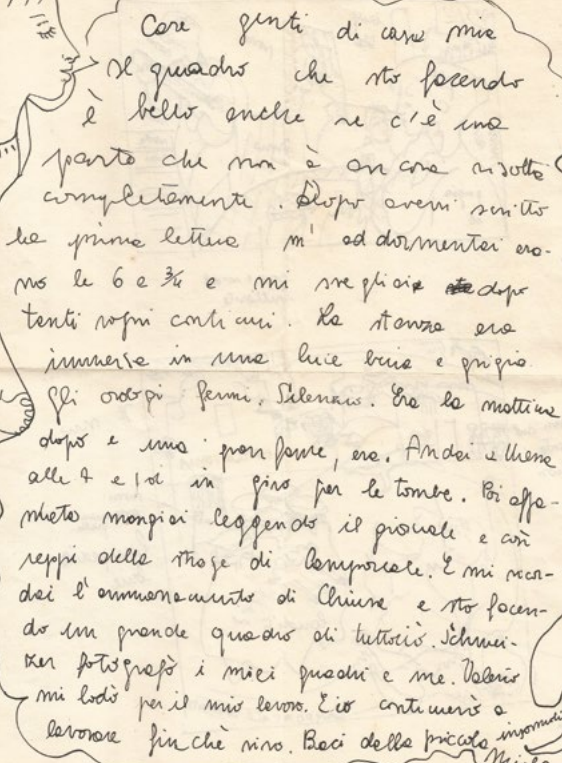 Care genti di casa mia
Il quadro che sto facendo
è bello anche se c'è una
parte che non è ancora risolta
completamente. Dopo avervi scritto
la prima lettera m'addormentai era-
no le 6 e 3/4 e mi svegliai dopo
tanti sogni continui. La stanza era
immersa in una luce buia e grigia
gli orologi fermi. Silenzio. Era la mattina
dopo e una gran fame, era. Andai a Messa
alle 7 e poi in giro per le tombe. Poi affa-
mata mangiai leggendo il giornale e così
seppi della strage di Camporeale. E mi ricor-
dai l'ammonamento di Chiusa e sto facen-
do un grande quadro di tuttociò. Schwei-
zer fotografò i miei quadri e me. Valerio
mi lodò per il mio lavoro. E io continuerò a
lavorare finchè vivo. Baci dalla piccola